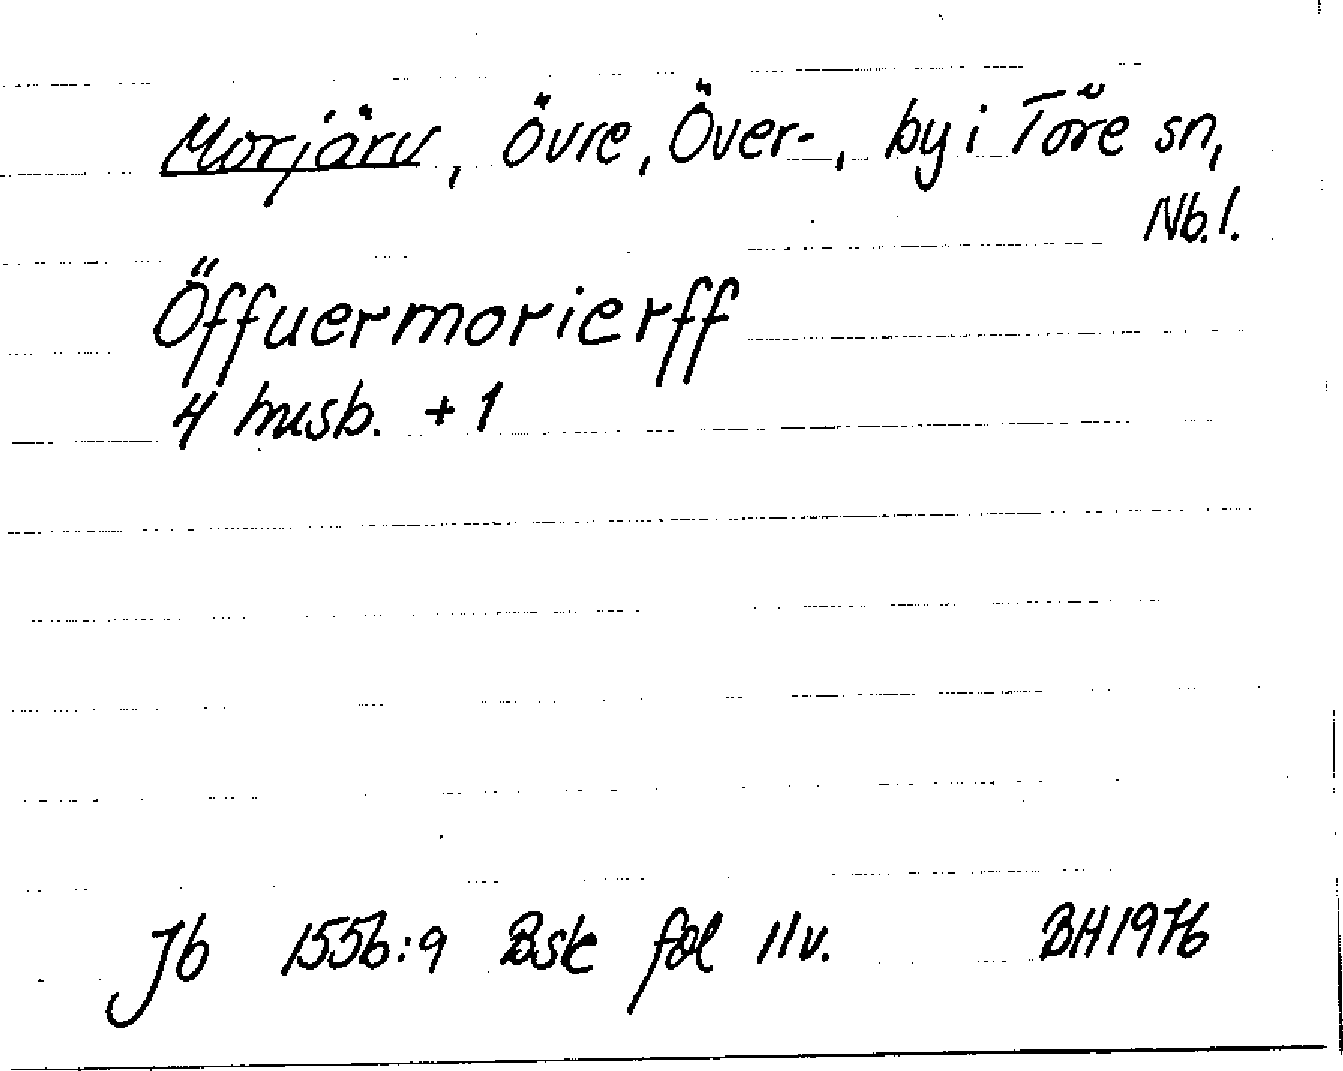 Morjärv, Övre, Över-, by i Töre sn,
Nb.l.
Öffuermorierff
4 husb. + 1
Jb 1556:9 Bsk fol 11v. BH1976